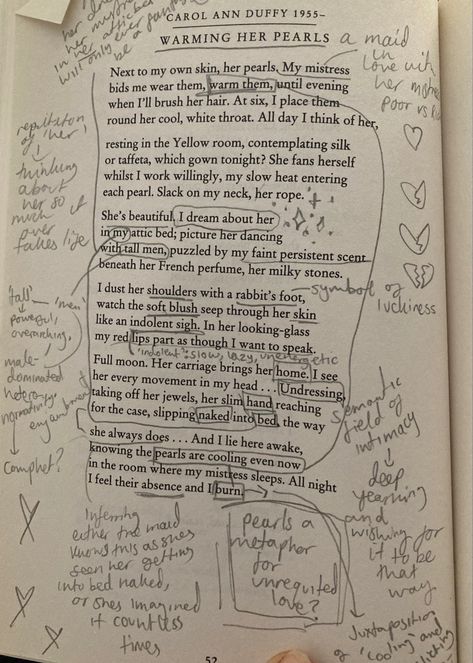 CAROL ANN DUFFY 1955–
WARMING HER PEARLS
a maid
in
love with
her mistress
poor vs
her
in her attic bed
will only ever
be a
Next to my own skin, her pearls. My mistress
bids me wear them, warm them, until evening
when I'll brush her hair. At six, I place them
round her cool, white throat. All day I think of her,
resting in the Yellow room, contemplating silk
or taffeta, which gown tonight? She fans herself
whilst I work willingly, my slow heat entering
each pearl. Slack on my neck, her rope.
She's beautiful. I dream about her
in my attic bed; picture her dancing
with tall men, puzzled by my faint persistent scent
beneath her French perfume, her milky stones.
I dust her shoulders with a rabbit's foot,
watch the soft blush seep through her skin
like an indolent sigh. In her looking-glass
my red lips part as though I want to speak.
'indolent': slow, lazy, unenergetic
Full moon. Her carriage brings her home. I see
her every movement in my head . . . Undressing,
taking off her jewels, her slim hand reaching
for the case, slipping naked into bed, the way
she always does . . . And I lie here awake,
knowing the pearls are cooling even now
in the room where my mistress sleeps. All night
I feel their absence and I burn.
repetition
of 'her'
thinking
about
her so
much
over
takes life
'tall' – 'men'
powerful,
overarching,
male-
dominated
hetero-
normativity
enjambment
comphet?
symbol of
luckiness
semantic
field of
intimacy
deep
yearning
and
wishing for
it to be
that
way
Juxtaposition
of 'cooling' and
inferring
either the maid
knows this as shes
seen her getting
into bed naked,
or shes imagined
it countless
times
pearls a
metaphor
for
unrequited
love?
52